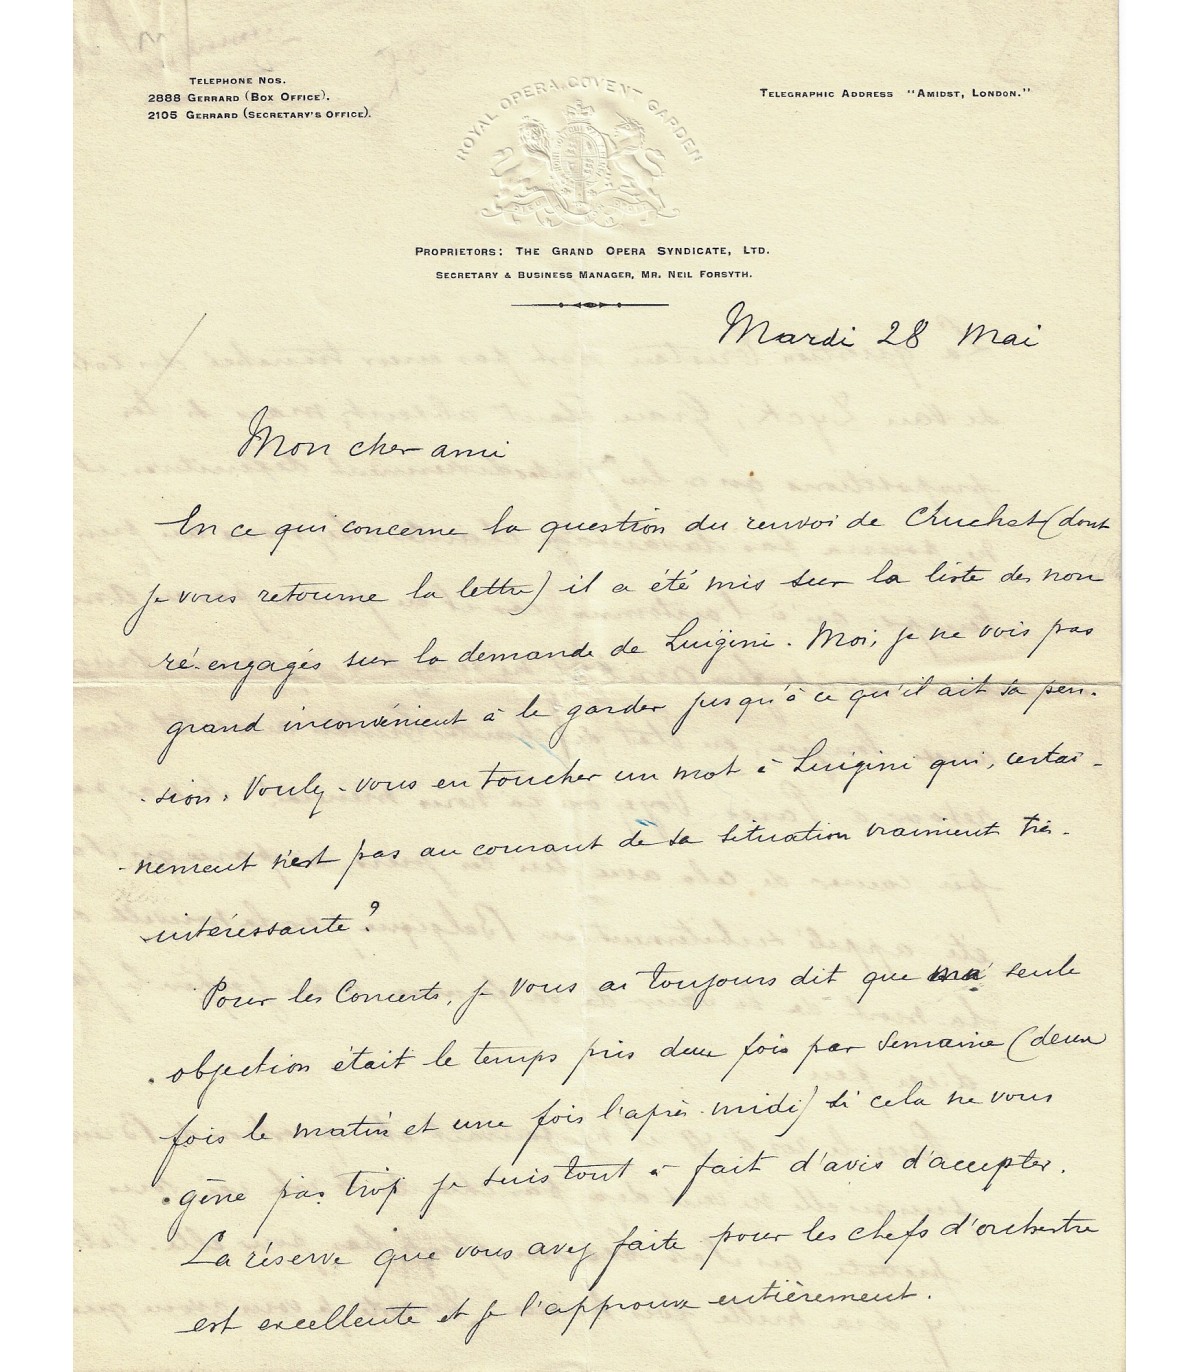 TELEPHONE NOS.
2888 GERRARD (BOX OFFICE).
2105 GERRARD (SECRETARY'S OFFICE).
ROYAL OPERA COVENT GARDEN
TELEGRAPHIC ADDRESS "AMIDST, LONDON."
PROPRIETORS: THE GRAND OPERA SYNDICATE, LTD.
SECRETARY & BUSINESS MANAGER, MR. NEIL FORSYTH.
Mardi 28 Mai
Mon cher ami
En ce qui concerne la question du renvoi de Cruchet (dont
je vous retourne la lettre) il a été mis sur la liste des non
ré-engagés sur la demande de Luigini. Moi, je ne vois pas
grand inconvénient à le garder jusqu'à ce qu'il ait sa pen-
-sion. Voulez-vous en toucher un mot à Luigini qui, certai-
-nement n'est pas au courant de sa situation vraiment très-
intéressante?
Pour les Concerts, je vous ai toujours dit que ma seule
objection était le temps pris deux fois par semaine (deux
fois le matin et une fois l'après-midi) si cela ne vous
gêne pas trop je suis tout à fait d'avis d'accepter.
La réserve que vous avez faite pour les chefs d'orchestre
est excellente et je l'approuve entièrement.